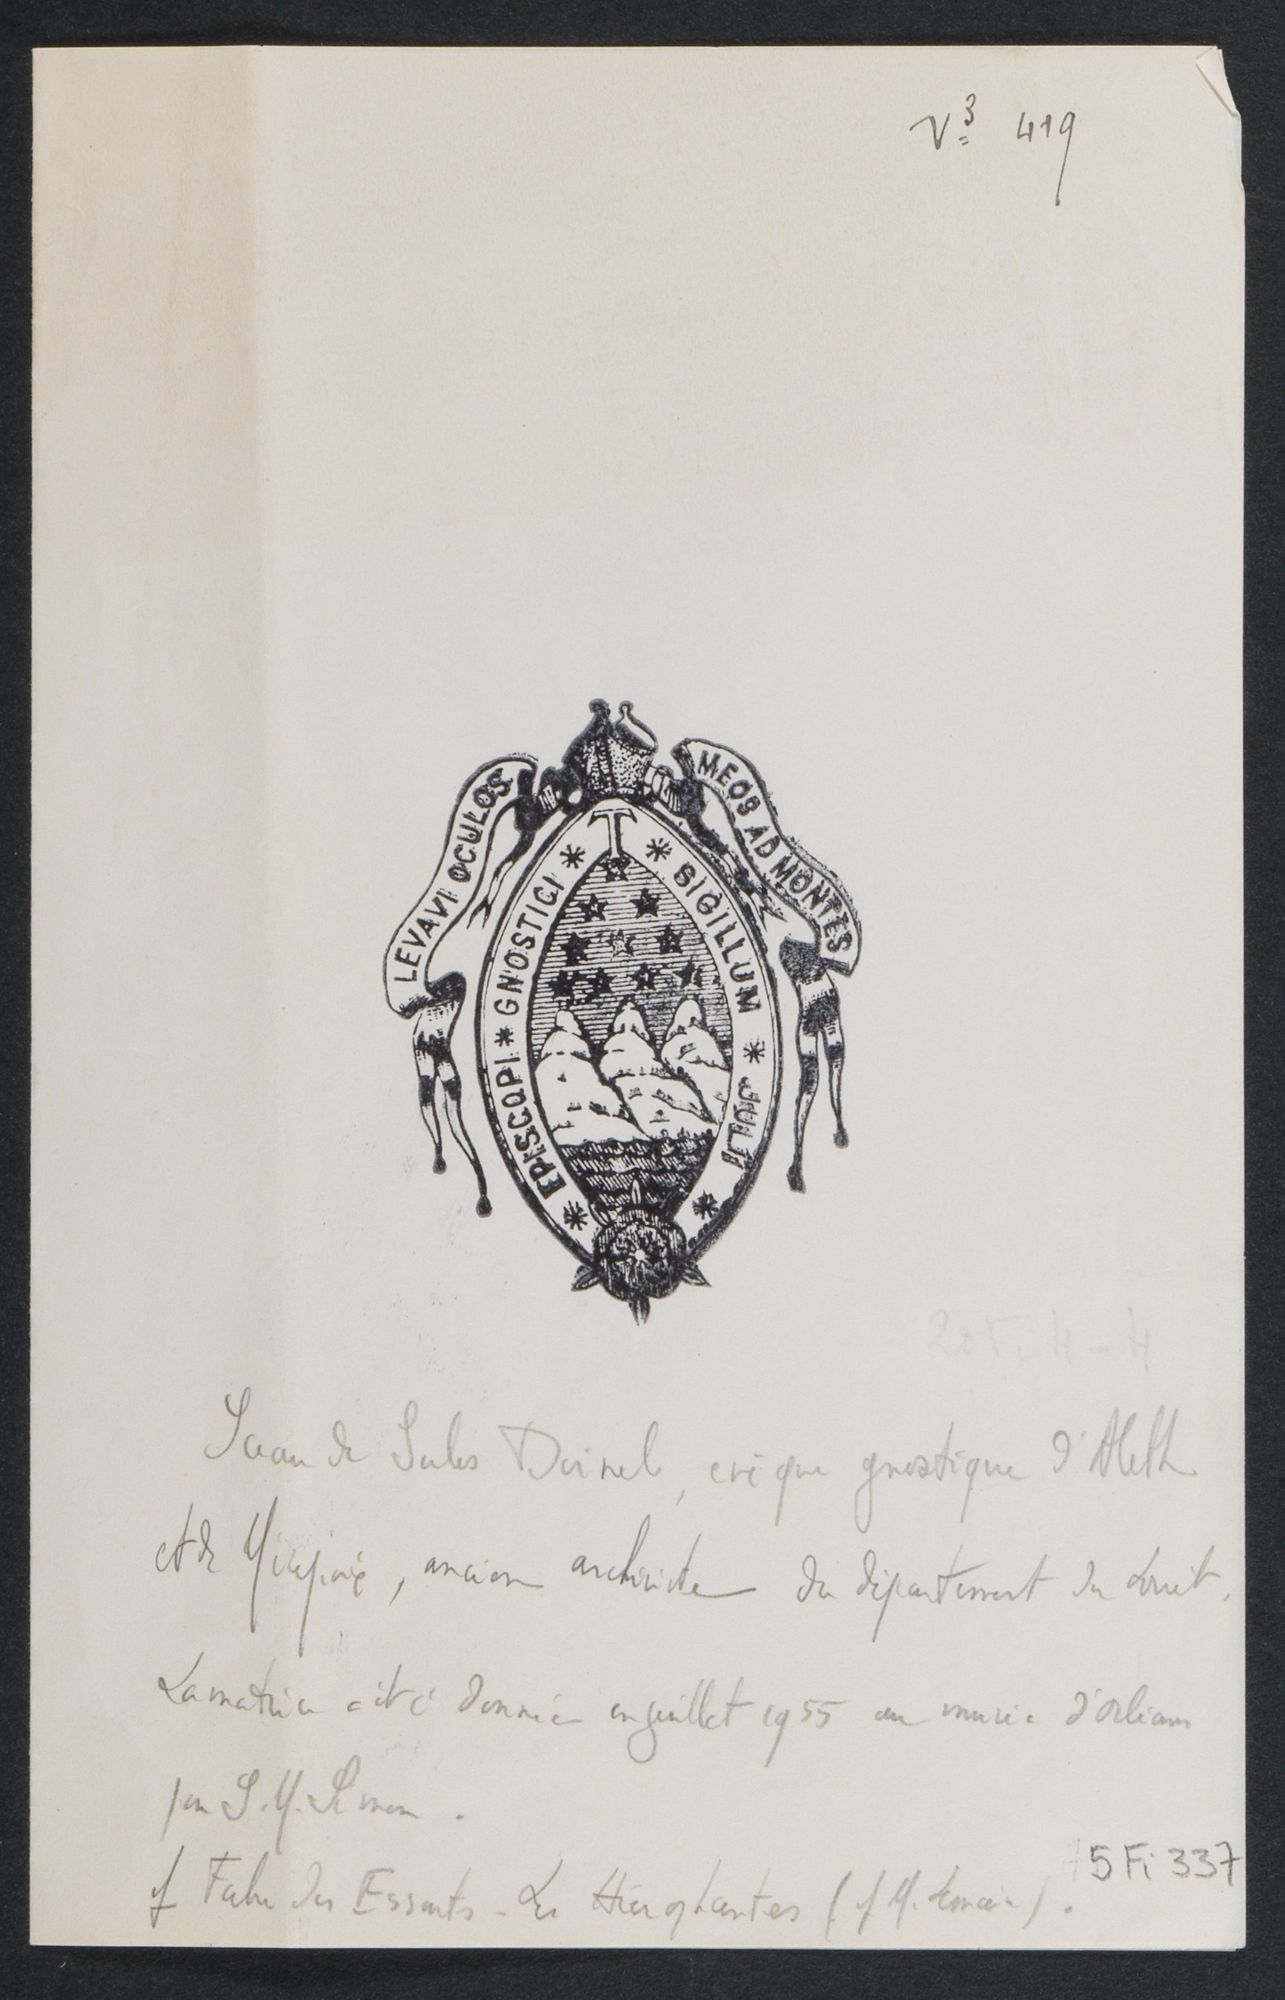 V³ 419
LEVAVI OCULOS
MEOS AD MONTES
T
* SIGILLUM *
* EPISCOPI * GNOSTICI *
20 Fi 4-4
Jean de Sales Doinel, évêque gnostique d'Aleth
et de Mirepoix, ancien archiviste du département du Loiret.
La matrice a été donnée en juillet 1955 au musée d'Orléans
par
cf Fabre des Essarts - Les Hiérophantes
5 Fi 337